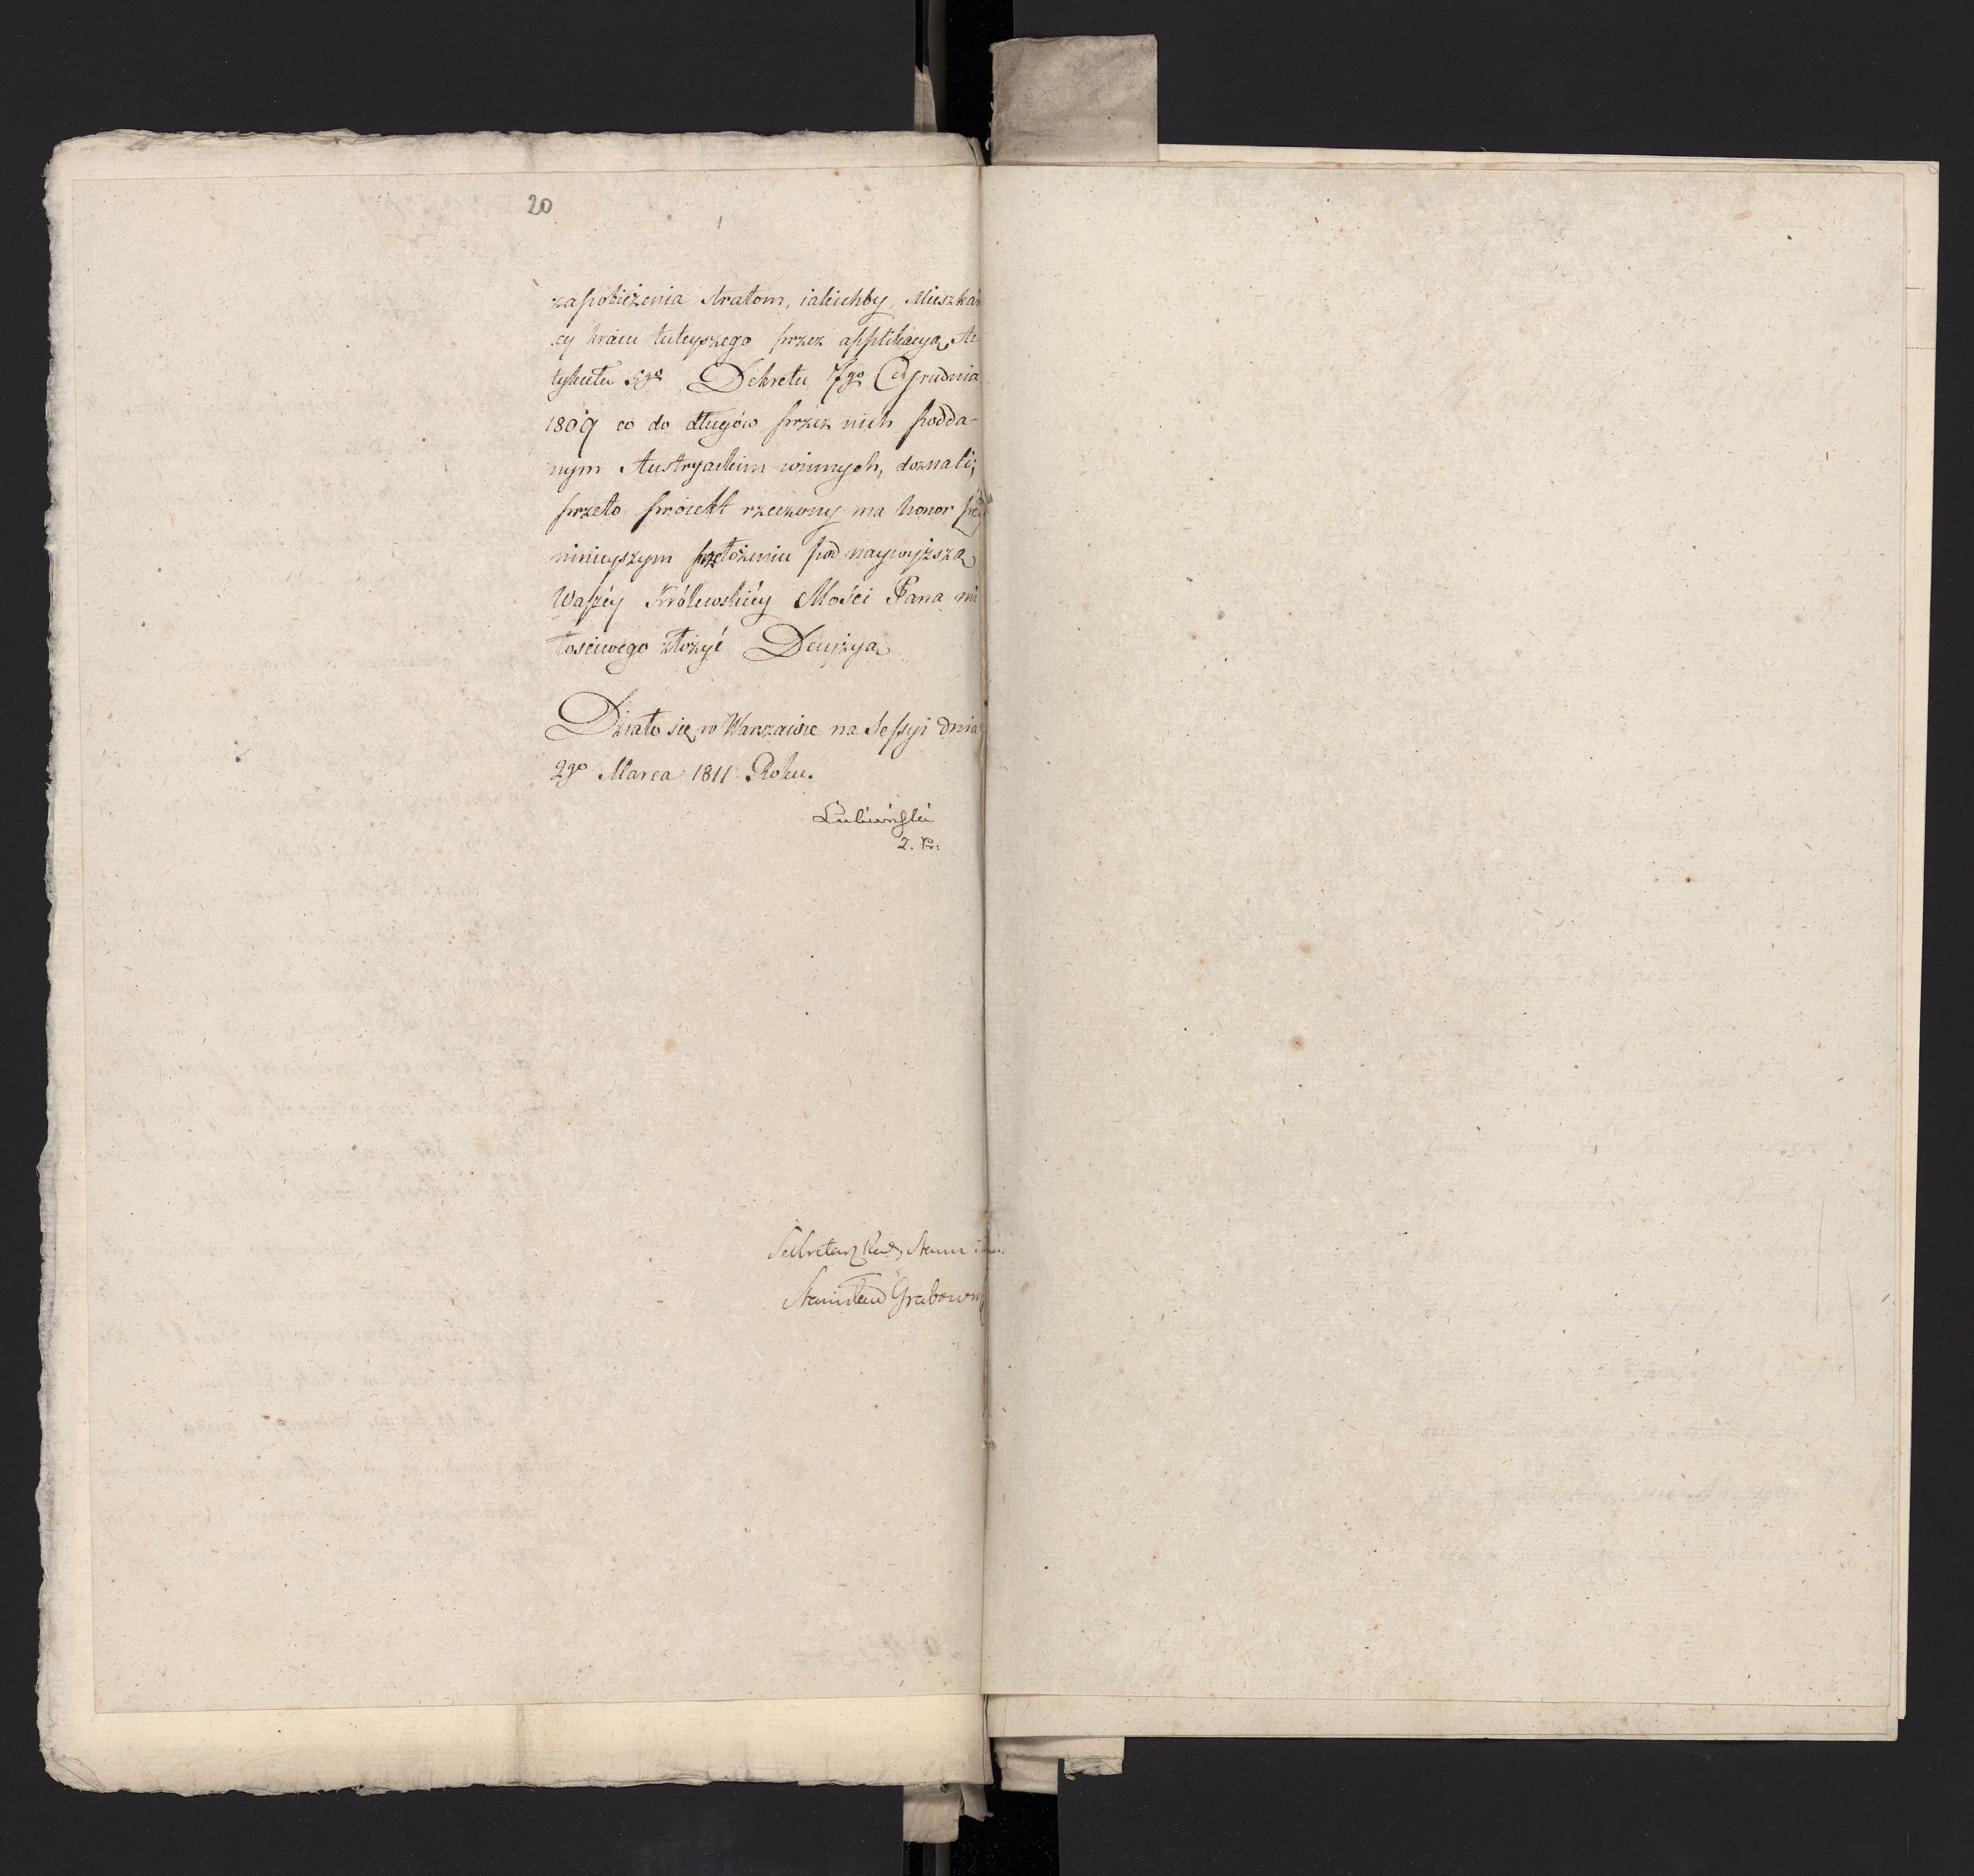 20
zapobieżenia stratom, iakichby Mieszkań
cy kraiu tuteyszego przez applikacyą Ar
tykułu 5go Dekretu 7go Grudnia
1809 co do długów przez nich podda-
nym Austryackim winnych, doznali;
przeto proiekt rzeczony ma honor przy
ninieyszym przełożeniu pod naywyższą
Waszéy Królewskiéy Mości Pana mi
łościwego złożyć Decyzyą
Działo się w Warszawie na Sessyi dnia
2go Marca 1811 Roku.
Łubieński
Sekretarz Rady Stanu
Stanisław Grabowski